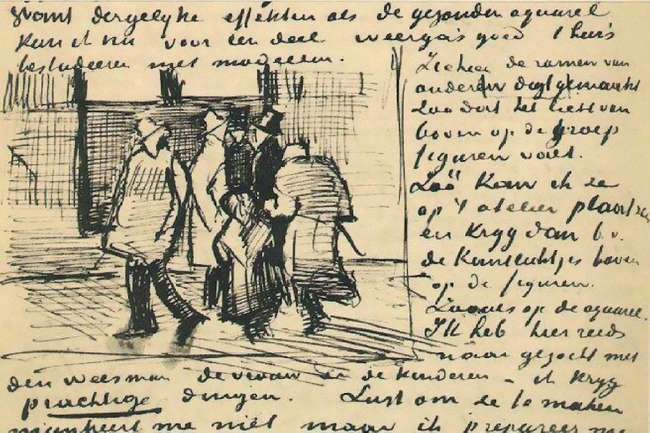 Want dergelyke effekten als de gezonden aquarel
kan ik nu voor een deel weerga's goed thuis
bestuderen met modellen.
Ik heb de ramen van
onderen digtgemaakt
zoodat het licht van
boven op de groep
figuren valt.
Zoo kan ik ze
op 't atelier plaatsen
en kryg dan b.v.
de kantlichtjes boven
op de figuren.
Zooals op de aquarel.
Ik heb hier reeds
naar gezocht met
den weesman de vrouw en de kinderen – ik kryg
prachtige dingen. Lust om ze te maken
mankeert me niet maar ik prepareer me